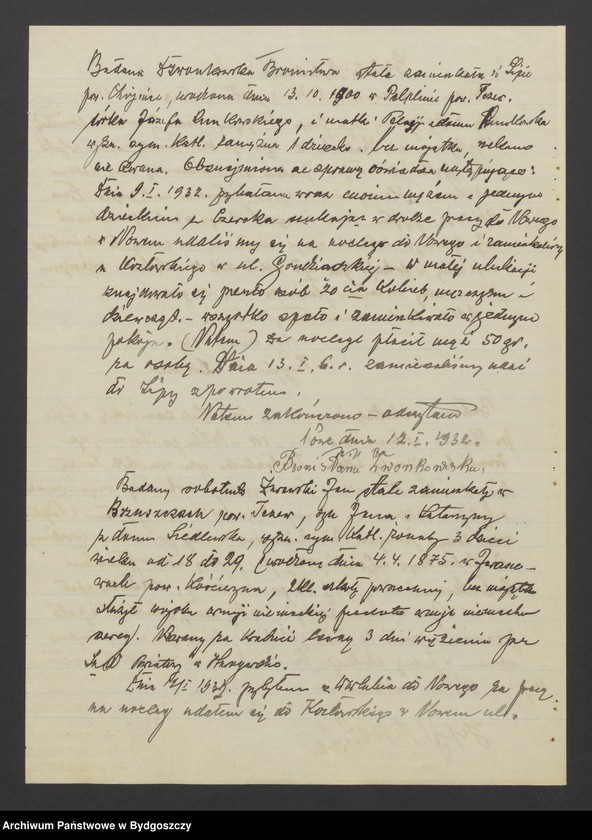 Badana Dzwonkowska Bronisława stale zamieszkała w Lipie
pow. Chojnice, urodzona dnia 13.10.1900 w Pelplinie pow. Tczew.
córka Józefa i matki Pelagji zdomu
wyzn. rzym. katl. zamężna 1 dziecko. bez majątku, rzekomo
nie karana. Obeznajmiona ze sprawą oświadcza następująco:
Dnia 9.I.1932. przybyłam wraz swoim mężem i jednym
dzieckiem z Czerska szukając w drodze pracy do Nowego
w Nowem udaliśmy się na nocleg do Nowego i zamieszkaliśmy
u Kozłowskiego w ul. Grudziądzkiej – w małej ubikacji
znajdowało się przeszło osób 20 cia kobiet, mężczyzn i
dziewcząt. – wszystko spało i zamieszkiwało w jednym
pokoju. (Natem) za nocleg płacił mąż 50 gr.
za osobę. Dnia 13.I. b.r. zamierzaliśmy udać
do Lipy z powrotem.
Natem zakończono – odczytano
Nowe dnia 12.I.1932.
Bronisława Dzwonkowska.
Badany robotnik Jan stale zamieszkały w
pow. Tczew, syn Jana i Katarzyny
z domu Siedlewska, wyzn. rzym. katl. żonaty 3 dzieci
wieku od 18 do 29. urodzony dnia 4.4.1875. w
pow. Kościerzyna, 2 kl. szkoły powszechnej, bez majątku
służył wojsku armji niemieckiej
Karany za kradzież 3 dni więzienia przez
Sąd
Dnia 1932. przybyłem z do Nowego za pracą
na nocleg udałem się do Kozłowskiego w Nowem ul.
Archiwum Państwowe w Bydgoszczy